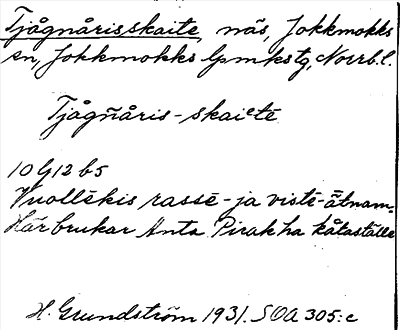 Tjågnårisskaite, näs, Jokkmokks
sn, Jokkmokks lpmkstg, Norrb.l.
Tjågñåris-skaiᵉtē
10 G 12 b5
Vuollēkis rassē- ja vistē-ätnam.
Här brukar Anta Pirak ha kåtaställe
H. Grundström 1931. SOA 305:c